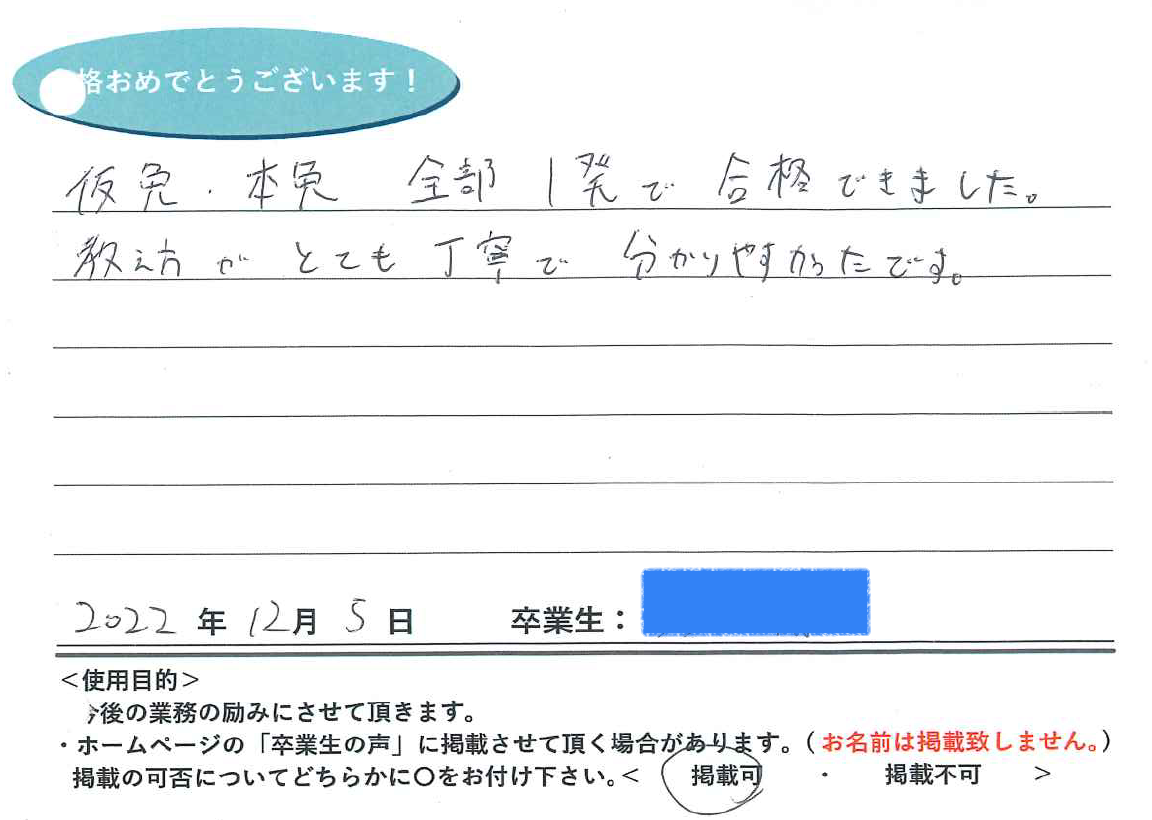 格おめでとうございます！
仮免・本免 全部 1発で 合格できました。
教え方が とても 丁寧で 分かりやすかったです。
2022年12月5日 卒業生：
＜使用目的＞
後の業務の励みにさせて頂きます。
・ホームページの「卒業生の声」に掲載させて頂く場合があります。（お名前は掲載致しません。）
掲載の可否についてどちらかに〇をお付け下さい。＜ 掲載可 ・ 掲載不可 ＞